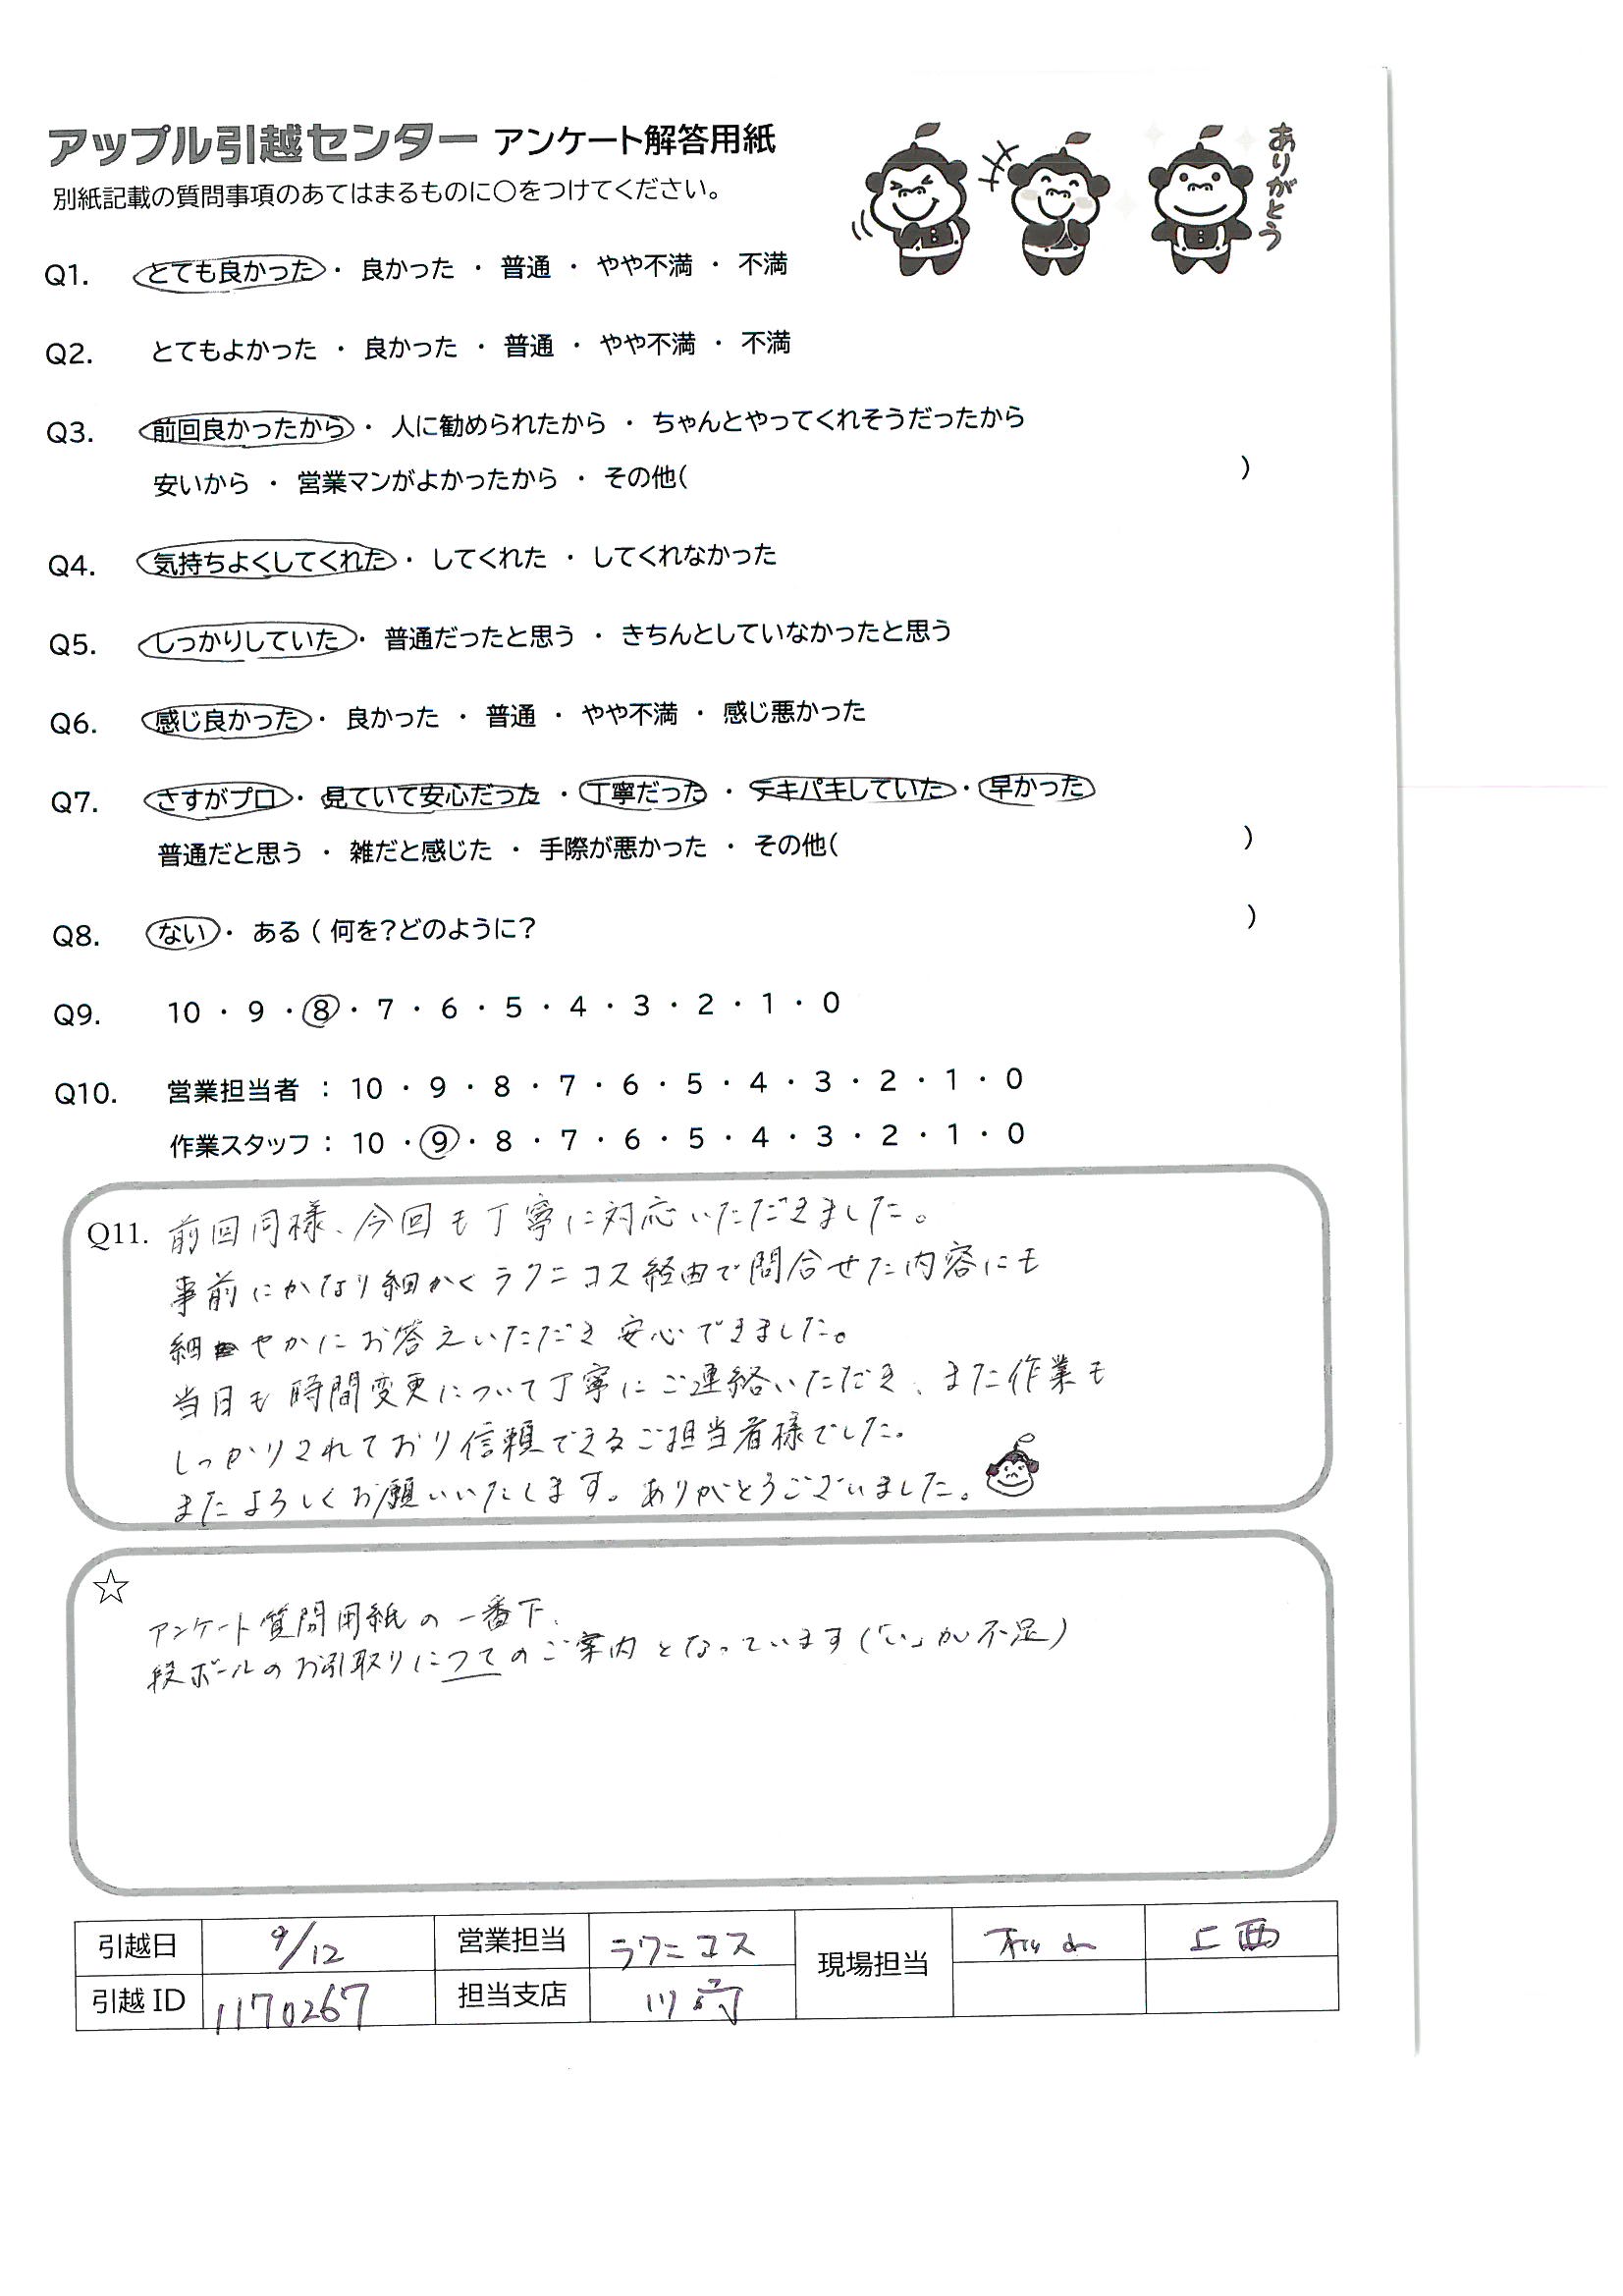 アップル引越センター アンケート解答用紙
別紙記載の質問事項のあてはまるものに○をつけてください。
ありがとう
Q1. とても良かった ・ 良かった ・ 普通 ・ やや不満 ・ 不満
Q2. とてもよかった ・ 良かった ・ 普通 ・ やや不満 ・ 不満
Q3. 前回良かったから ・ 人に勧められたから ・ ちゃんとやってくれそうだったから
安いから ・ 営業マンがよかったから ・ その他( )
Q4. 気持ちよくしてくれた ・ してくれた ・ してくれなかった
Q5. しっかりしていた ・ 普通だったと思う ・ きちんとしていなかったと思う
Q6. 感じ良かった ・ 良かった ・ 普通 ・ やや不満 ・ 感じ悪かった
Q7. さすがプロ ・ 見ていて安心だった ・ 丁寧だった ・ テキパキしていた ・ 早かった
普通だと思う ・ 雑だと感じた ・ 手際が悪かった ・ その他( )
Q8. ない ・ ある ( 何を?どのように? )
Q9. 10 ・ 9 ・ 8 ・ 7 ・ 6 ・ 5 ・ 4 ・ 3 ・ 2 ・ 1 ・ 0
Q10. 営業担当者 : 10 ・ 9 ・ 8 ・ 7 ・ 6 ・ 5 ・ 4 ・ 3 ・ 2 ・ 1 ・ 0
作業スタッフ : 10 ・ 9 ・ 8 ・ 7 ・ 6 ・ 5 ・ 4 ・ 3 ・ 2 ・ 1 ・ 0
Q11. 前回同様、今回も丁寧に対応いただきました。
事前にかなり細かくラクニコス経由で問合せた内容にも
細やかにお答えいただき安心できました。
当日も時間変更について丁寧にご連絡いただき、また作業も
しっかりされており信頼できるご担当者様でした。
またよろしくお願いいたします。ありがとうございました。
☆
アンケート質問用紙の一番下、
段ボールのお引取りにつてのご案内となっています(「い」が不足)
引越日 9/12 営業担当 ラクニコス 現場担当 上西
引越ID 1170267 担当支店